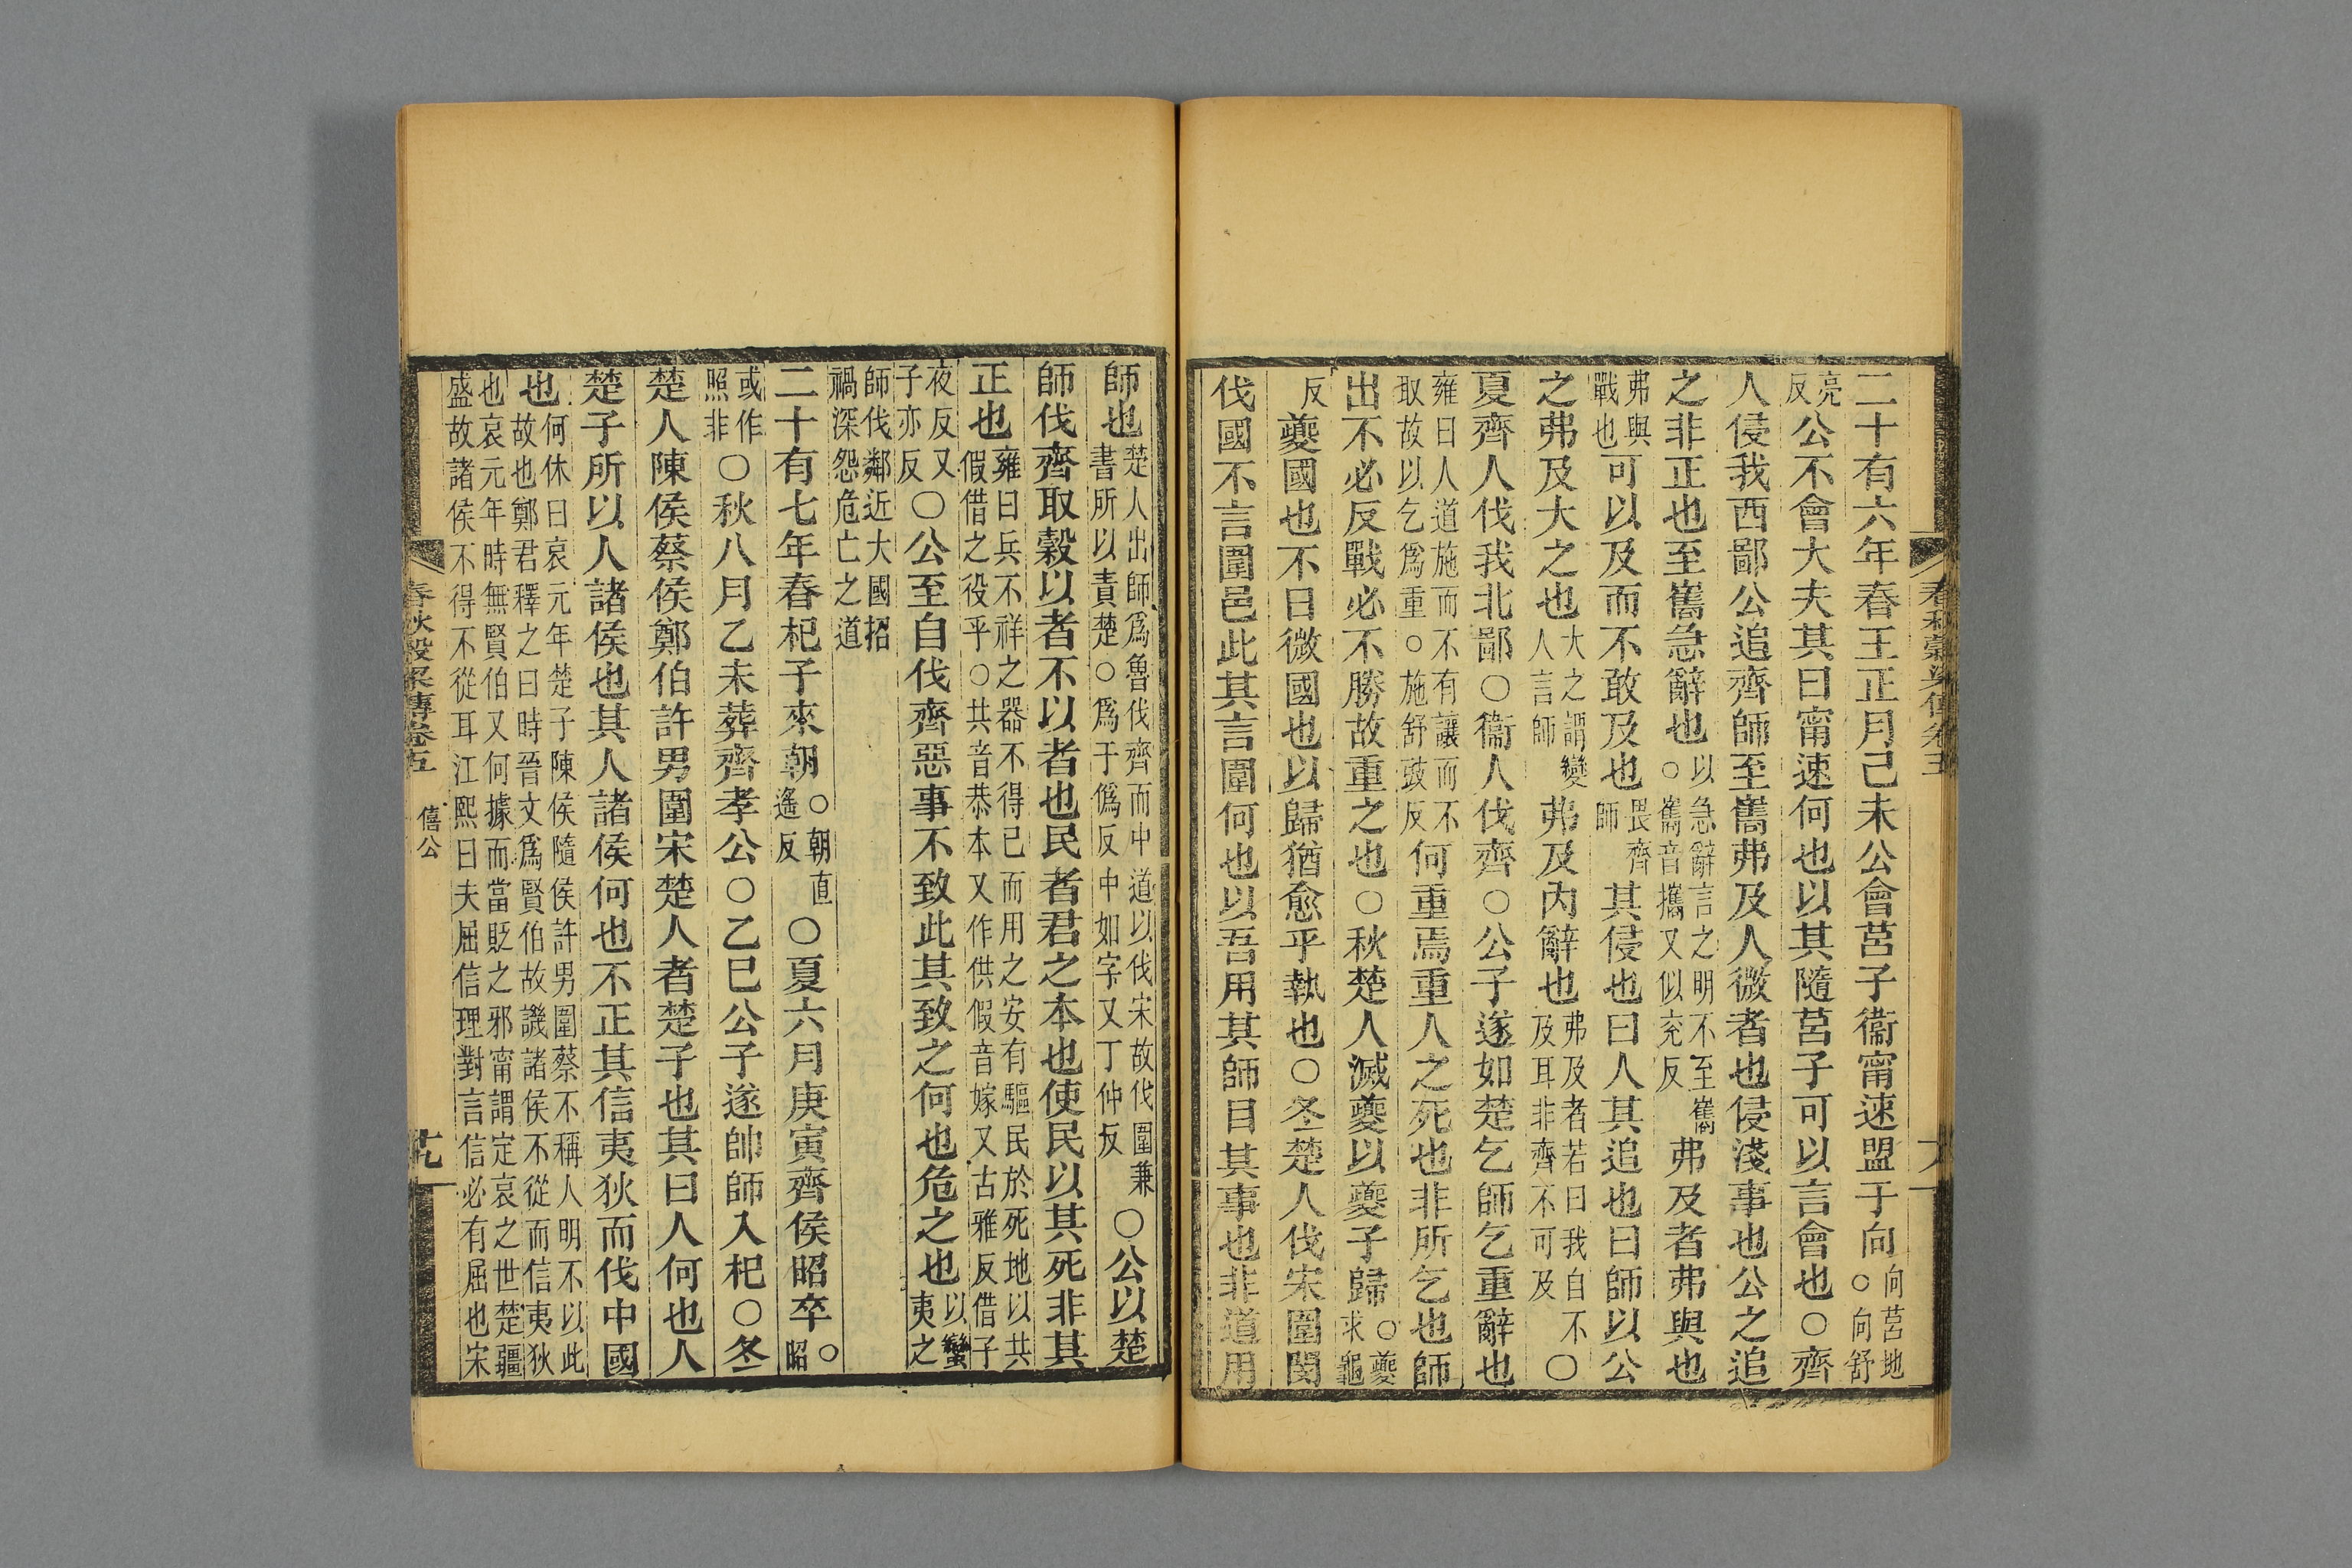 二十有六年春王正月己未公會莒子衞甯速盟于向向莒地○向舒
亮反公不會大夫其曰甯速何也以其隨莒子可以言會也○齊
人侵我西鄙公追齊師至巂弗及人微者也侵淺事也公之追
之非正也至巂急辭也以急辭言之明不至巂○巂音攜又似兖反弗及者弗與也
弗與戰也可以及而不敢及也畏齊師其侵也曰人其追也曰師以公
之弗及大之也大之謂變人言師弗及內辭也弗及者若曰我自不及耳非齊不可及○
夏齊人伐我北鄙○衞人伐齊○公子遂如楚乞師乞重辭也
雍曰人道施而不有讓而不取故以乞爲重○施舒豉反何重焉重人之死也非所乞也師
出不必反戰必不勝故重之也○秋楚人滅夔以夔子歸○夔求龜
反夔國也不日微國也以歸猶愈乎執也○冬楚人伐宋圍閔
伐國不言圍邑此其言圍何也以吾用其師目其事也非道用
師也楚人出師爲魯伐齊而中道以伐宋故伐圍兼書所以責楚○爲于僞反中如字又丁仲反○公以楚
師伐齊取穀以者不以者也民者君之本也使民以其死非其
正也雍曰兵不祥之器不得已而用之安有驅民於死地以共假借之役乎○共音恭本又作供假音嫁又古雅反借子
夜反又子亦反○公至自伐齊惡事不致此其致之何也危之也以蠻夷之
師伐鄰近大國招禍深怨危亡之道
二十有七年春杞子來朝○朝直遙反○夏六月庚寅齊侯昭卒○昭
或作照非○秋八月乙未葬齊孝公○乙巳公子遂帥師入杞○冬
楚人陳侯蔡侯鄭伯許男圍宋楚人者楚子也其曰人何也人
楚子所以人諸侯也其人諸侯何也不正其信夷狄而伐中國
也何休曰哀元年楚子陳侯隨侯許男圍蔡不稱人明不以此故也鄭君釋之曰時晉文爲賢伯故譏諸侯不從而信夷狄
也哀元年時無賢伯又何據而當貶之邪甯謂定哀之世楚彊盛故諸侯不得不從耳江熙曰夫屈信理對言信必有屈也宋
春秋穀梁傳卷五
春秋穀梁傳卷五 僖公